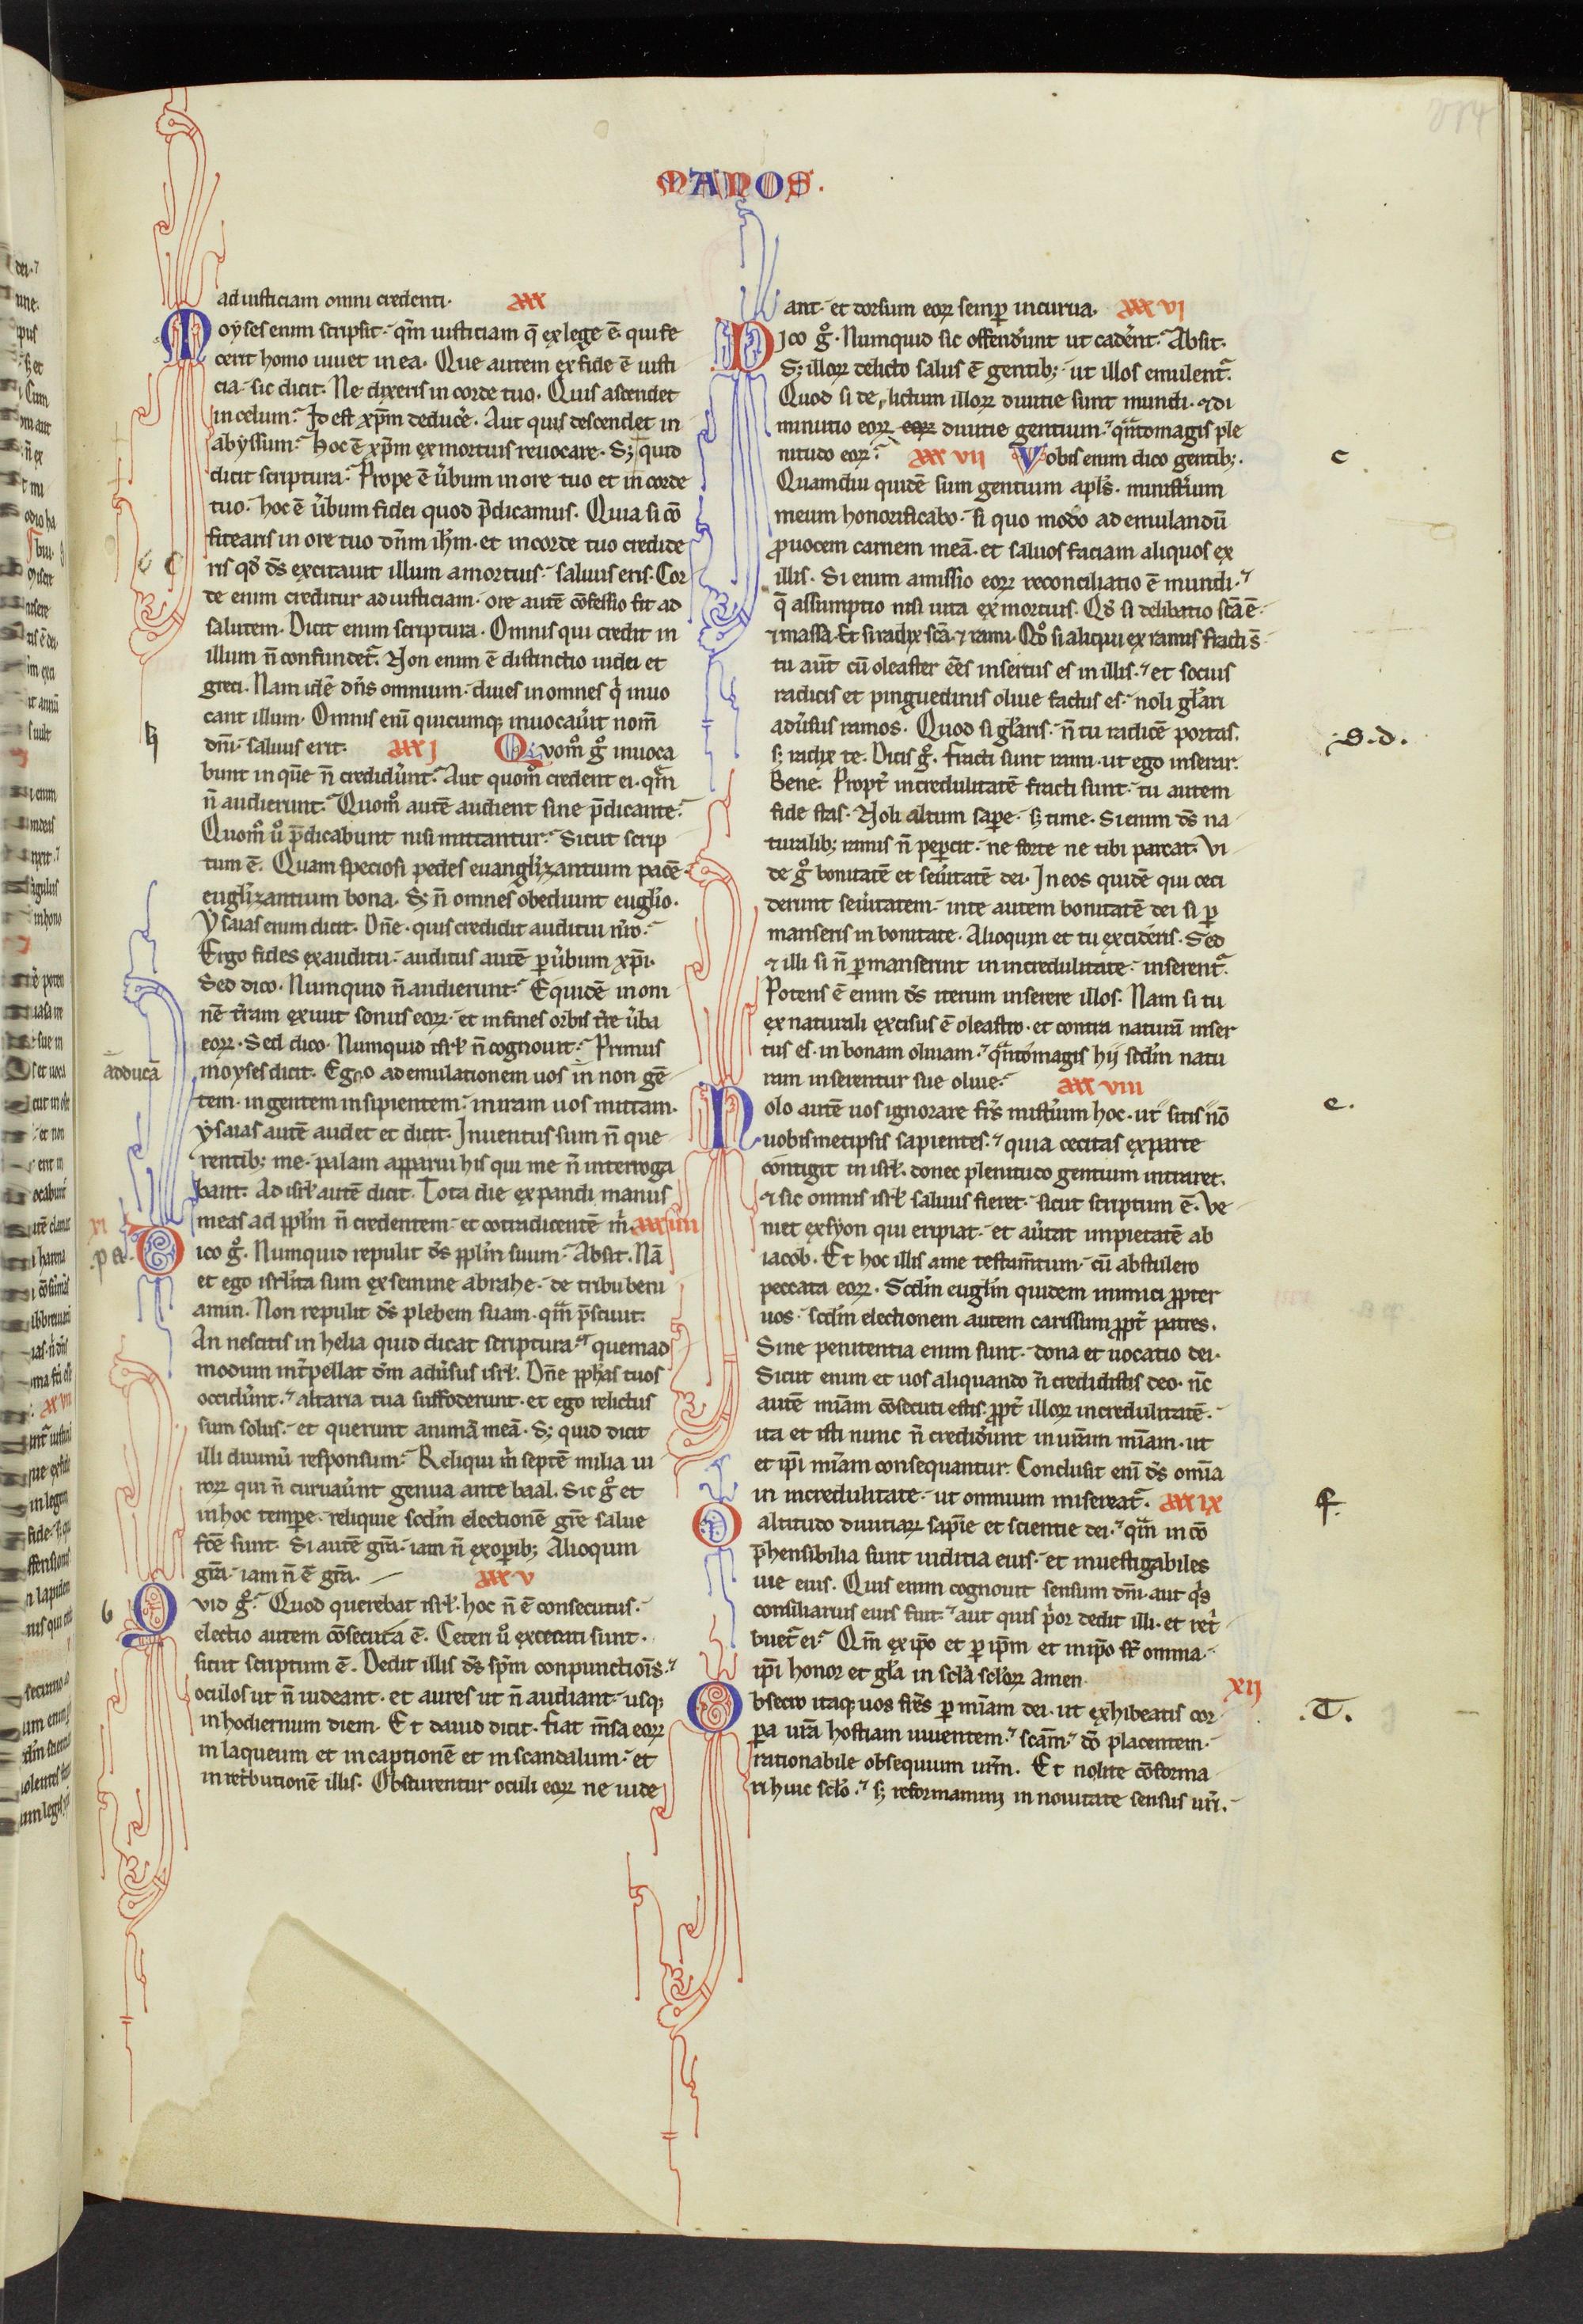 MANOS.
ad iusticiam omni credenti. XXX
Moyses enim scripsit. qm̄ iusticiam q̄ ex lege ē. qui fe
cerit homo uiuet in ea. Que autem ex fide ē iusti
cia sic dicit. Ne dixeris in corde tuo. Quis ascendet
in celum. Id est xp̄m deduce͛. Aut quis descendet in
abyssum. hoc ē xp̄m ex mortuis reuocare. S; quid
dicit scriptura. Prope ē u͛bum in ore tuo et in corde
tuo. hoc ē u͛bum fidei quod p̄dicamus. Quia si cō
fitearis in ore tuo dn̄m ih̄m. et in corde tuo credide
ris qd̓ ds̄ excitauit illum a mortuis. saluus eris. Cor
de enim creditur ad iusticiam. ore autē cōfessio fit ad
salutem. Dicit enim scriptura. Omnis qui credit in
illum n̄ confundet᷑. Non enim ē distinctio iudei et
greci. Nam idē dn̄s omnium. diues in omnes q̇ inuo
cant illum. Omnis eni̅ quicumq; inuocau͛it nom̄
h
dn̄i. saluus erit. XXXI Quom̊ g̊ inuoca
bunt in que̅ n̄ credidu͛nt. Aut quom̊ credent ei. qm̄
n̄ audierunt. Quom̊ autē audient sine p̄dicante.
Quom̊ ů p̄dicabunt nisi mittantur. Sicut scrip
tum ē. Quam speciosi pedes euangl̓izantium pacē
eugl̓izantium bona. S; n̄ omnes obediunt eugl̓io.
Ysaias enim dicit. Dn̄e. quis credidit auditui nr̄o.
Ergo fides ex auditu. auditus autē p̱ u͛bum xp̄i.
Sed dico. Numquid n̄ audierunt. Equidē in om
nē t͛ram exiuit sonus eoꝝ. et in fines orbis t͛re u͛ba
eoꝝ. Sed dico. Numquid isrl̓ n̄ cognouit. Primus
adducā
moyses dicit. Ego ad emulationem uos in non gē
tem. in gentem insipientem. in iram uos mittam.
ysaias autē audet et dicit. Inuentus sum n̄ que
rentib; me. palam apparui his qui me n̄ interroga
bant. Ad isrl̓ autē dicit. Tota die expandi manus
meas ad ppl̓m n̄ credentem. et cotradicentē m̓. XXXIIII
XI
pa.
Dico g̊. Numquid repulit ds̄ ppl̓m suum. Absit. Nā
et ego isrl̓ita sum ex semine abrahe. de tribu beni
amin. Non repulit ds̄ plebem suam. qm̄ p̄sciuit.
An nescitis in helia quid dicat scriptura. quemad
modum int͛pellat dm̄ adu͛sus isrl̓. Dn̄e pph̓as tuos
occidu͛nt. altaria tua suffoderunt. et ego relictus
sum solus. et querunt animā meā. S; quid dicit
illi diuinū responsum. Reliqui m̓ septē milia ui
roꝝ qui n̄ curuau͛unt genua ante baal. Sic g̊ et
in hoc tempe. reliquie scdm̓ electionē gr̄e salue
fcē sunt. Si autē gr̄a. iam n̄ ex opib; Alioquin
gr̄a. iam n̄ ē gr̄a. XXXV
6
Quid g̊. Quod querebat isrl̓. hoc n̄ ē consecutus.
electio autem cōsecuta ē. Ceteri ů excecati sunt.
sicut scriptum ē. Dedit illis ds̄ spm̄ conpunctiois̄.
oculos ut n̄ uideant. et aures ut n̄ audiant. usq;
in hodiernum diem. Et dauid dicit. fiat m̄sa eoꝝ
in laqueum et in captionē et in scandalum. et
in ret͛butionē illis. Obscurentur oculi eoꝝ ne uide
ant. et dorsum eoꝝ semp̱ incurua. XXXVI
Dico g̊. Numquid sic offendu͛nt ut cade͛nt. Absit.
S; illoꝝ delicto salus ē gentib;. ut illos emulent᷑.
Quod si delictum illoꝝ diuitie sunt mundi. et di
minutio eoꝝ eoꝝ diuitie gentium. qn̄tomagis ple
nitudo eoꝝ. XXXVII Vobis enim dico gentib;.
c
Quamdiu quidē sum gentium apl̓s. minist͛ium
meum honorificabo. si quo modo ad emulandū
ꝓuocem carnem meā. et saluos faciam aliquos ex
illis. Si enim amissio eoꝝ reconciliatio ē mundi.
q̄ assumptio nisi uita ex mortuis. Qd̓ si delibatio scā ē.
⁊ massa. Et si radix scā. ⁊ rami. Qd̓ si aliqui ex ramis fracti s̄
tu aut̄ cū oleaster ee̅s insertus es in illis. et socius
radicis et pinguedinis oliue factus es. noli gl̓ari
adu͛sus ramos. Quod si gl̓aris. n̄ tu radicē portas.
S.d.
s; radix te. Dicis g̊. fracti sunt rami. ut ego inserar.
Bene. Propt͛ incredulitatē fracti sunt. tu autem
fide stas. Noli altum sape. s; time. Si enim ds̄ na
turalib; ramis n̄ pepercit. ne forte ne tibi parcat. Vi
de g̊ bonitatē et seu͛itatē dei. In eos quidē qui ceci
derunt seu͛itatem. in te autem bonitatē dei si p̱
manseris in bonitate. Alioquin et tu excideris. Sed
⁊ illi si n̄ p̱manserint in incredulitate. inserent᷑.
Potens ē enim ds̄ iterum inserere illos. Nam si tu
ex naturali excisus ē oleastro. et contra naturā inser
tus es. in bonam oliuam. qn̄tomagis hij scdm̓ natu
ram inserentur sue oliue. XXXVIII
Nolo autē uos ignorare frs̄ mist͛ium hoc. ut sitis nō
e.
uobismetipsis sapientes. quia cecitas ex parte
contigit in isrl̓. donec plenitudo gentium intraret.
⁊ sic omnis isrl̓ saluus fieret. sicut scriptum ē. Ve
niet ex syon qui eripiat. et au͛tat impietatē ab
iacob. Et hoc illis a me testam̄tum. cū abstulero
peccata eoꝝ. Scdm̓ eugl̓m quidem inimici ꝓpter
uos. scdm̓ electionem autem carissimi ꝓpt͛ patres.
Sine penitentia enim sunt. dona et uocatio dei.
Sicut enim et uos aliquando n̄ credidistis deo. nc̄
autē miā̄m cōsecuti estis. ꝓpt͛ illoꝝ incredulitatē.
ita et isti nunc n̄ credidu͛unt in uram̄ mīam. ut
et ip̄i mīam consequantur. Conclusit eni̅ ds̄ omīa
in incredulitate. ut omnium misereat᷑. XXXIX
f.
O altitudo diuitiaꝝ sapīe et scientie dei. qm̄ in cō
p̄hensibilia sunt iuditia eius. et inuestigabiles
uie eius. Quis enim cognouit sensum dn̄i. aut q̇s
consiliarius eius fuit. aut quis p̓or dedit illi. et ret͛
buet᷑ ei. Qm̄ ex ip̄o et p̱ ip̄m et in ip̄o st̄ omnia.
ip̄i honor et gl̓a in scl̓a scl̓oꝝ amen.
XII
Obsecro itaq; uos frēs p̱ mīam dei. ut exhibeatis cor
T.
pa ura̅ hostiam uiuentem. scām. dō placentem.
rationabile obsequium urm̄. Et nolite cōforma
ri huic scl̓o. s; reformamini in nouitate sensus ur̄i.